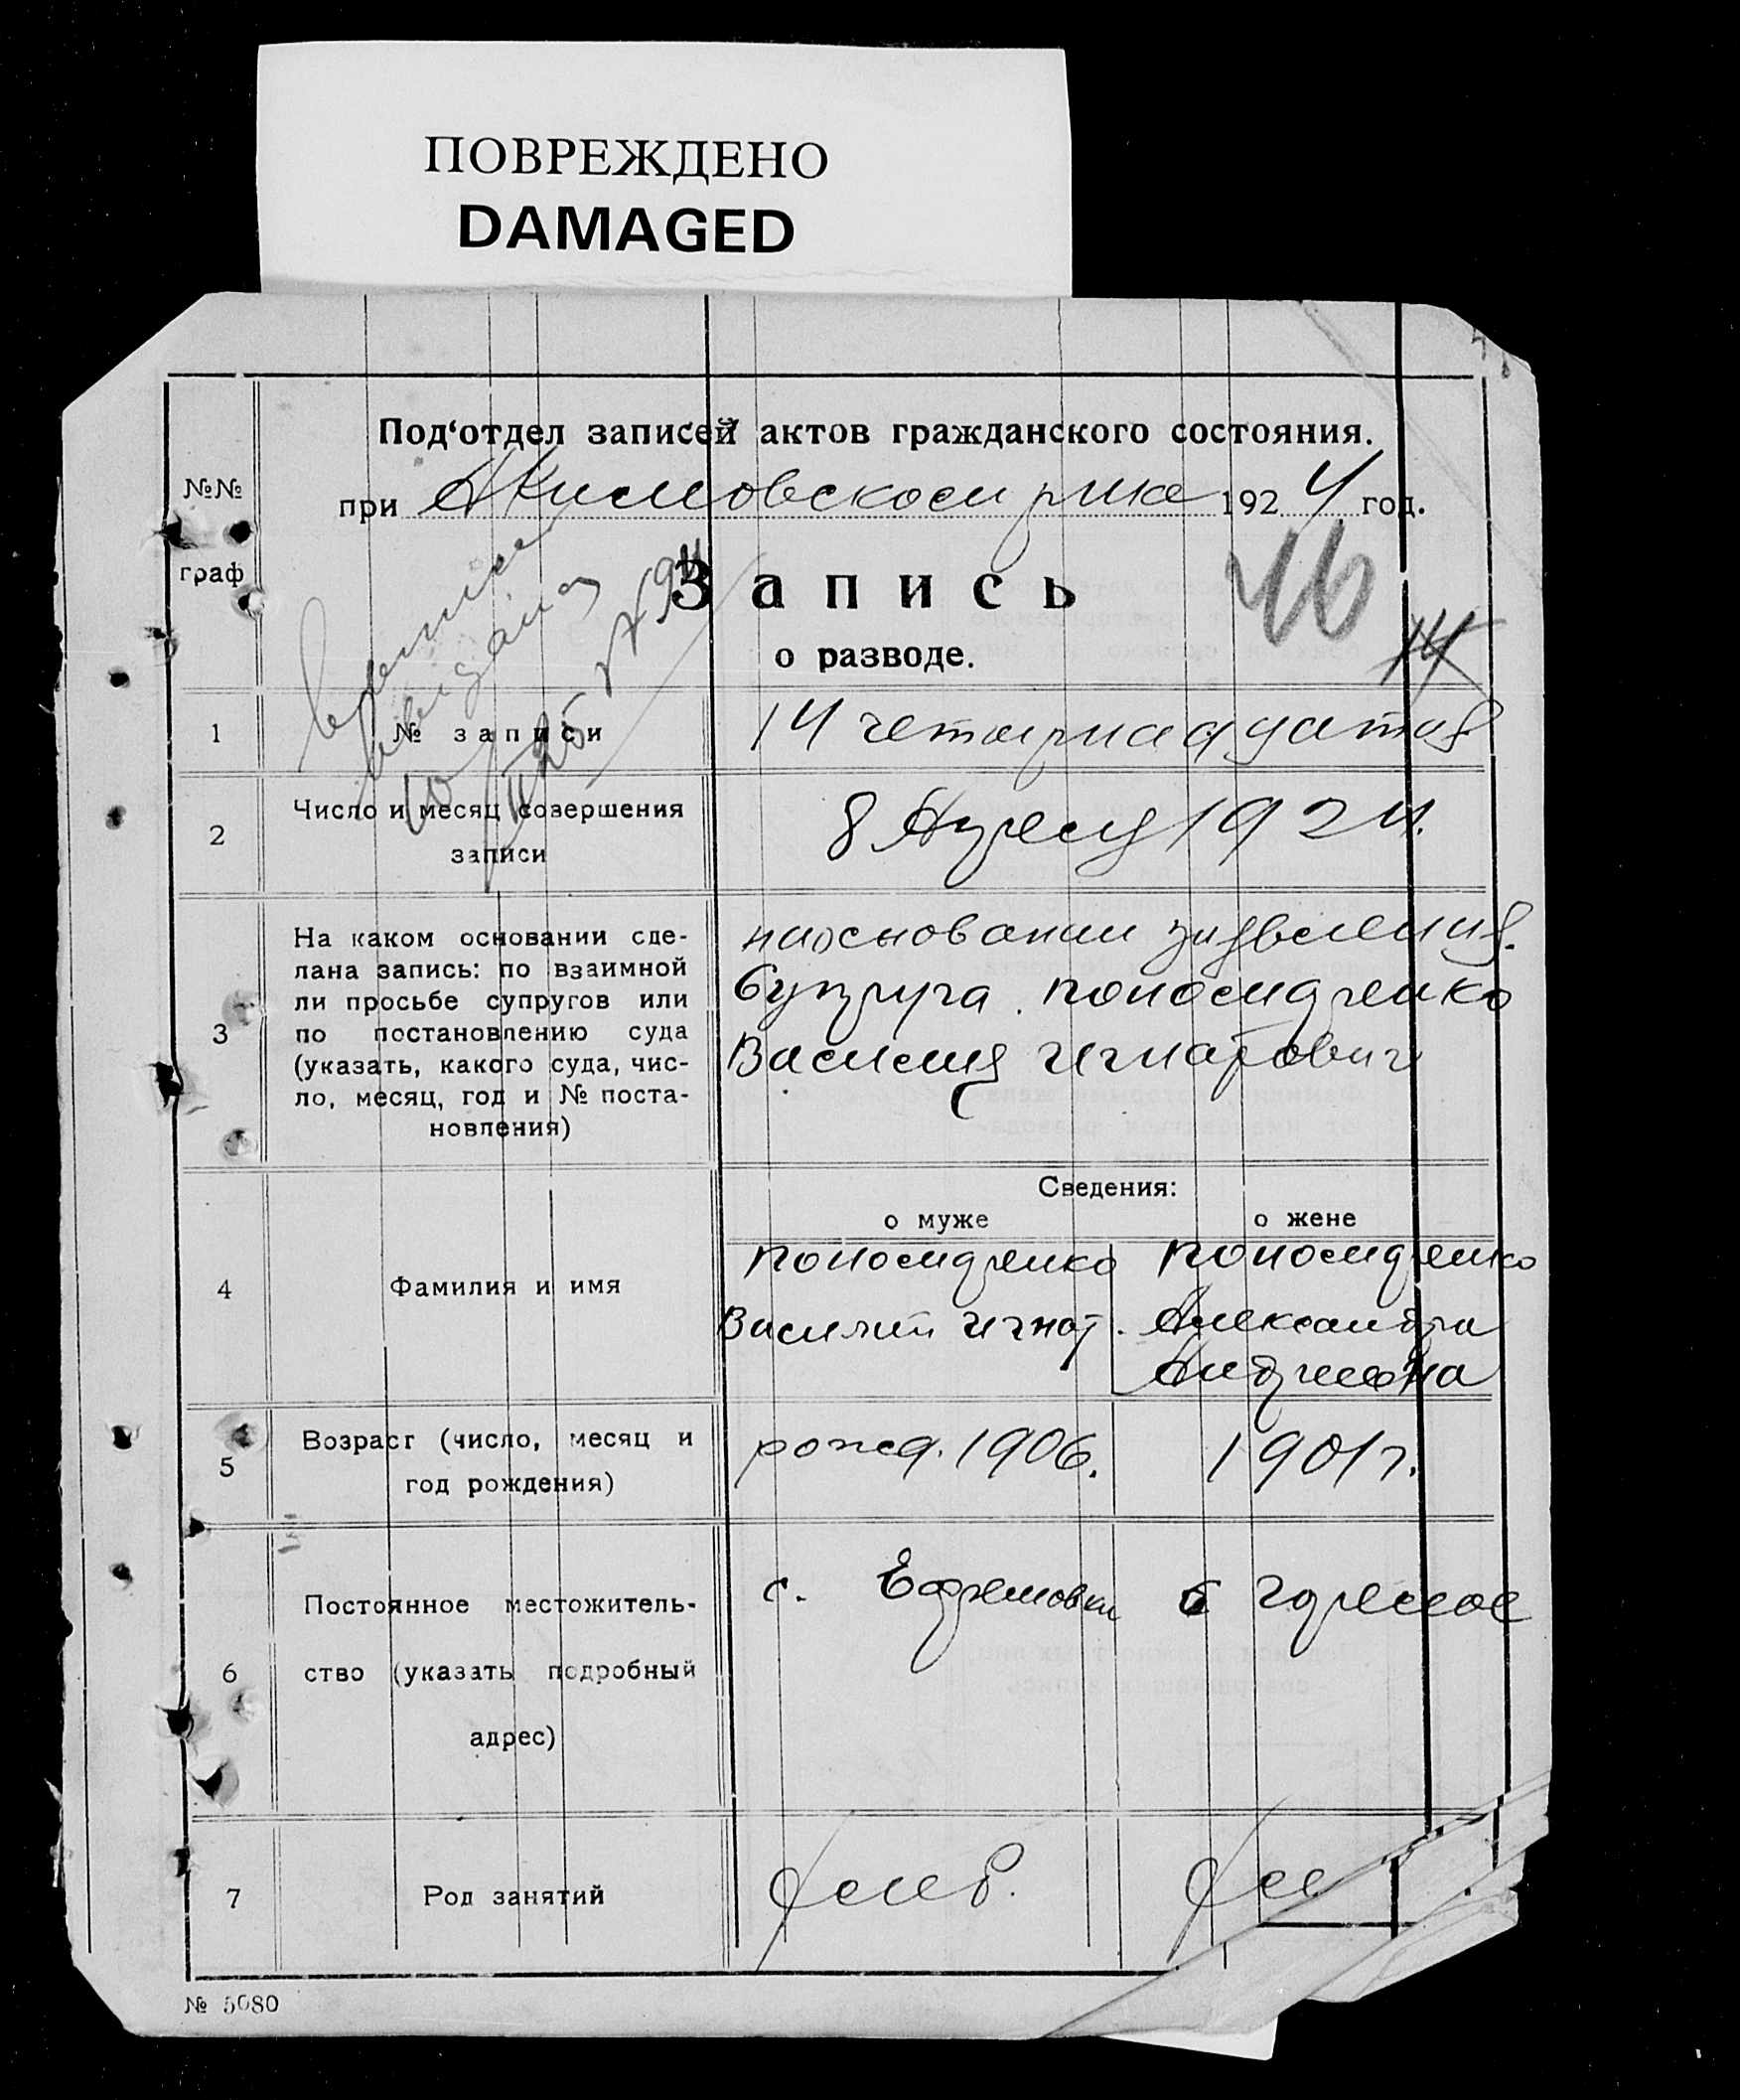 ПОВРЕЖДЕНО
DAMAGED
Под‘отдел записей актов гражданского состояния.
№№
граф
при Акимовском рике 1924 год.
Запись
46
14
о разводе.
выписка
выдана
1 № записи 14 четырнадцатая
2 Число и месяц совершения
записи
8 Апреля 1924.
3 На каком основании сде-
лана запись: по взаимной
ли просьбе супругов или
по постановлению суда
(указать, какого суда, чис-
ло, месяц, год и № поста-
новления)
на основании заявления
супруга
Василия Игнатович
Сведения:
о муже о жене
4 Фамилия и имя
Василий Игнат. Александра
5 Возраст (число, месяц и
год рождения)
рожд. 1906. 1901 г.
6 Постоянное местожитель-
ство (указать подробный
адрес)
с. Ефремовки
7 Род занятий
№ 5080